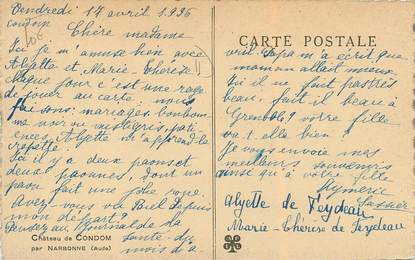 Vendredi 17 avril 1936
Condom
Chère madame
Ici je m'amuse bien avec
Alyette et Marie-Thérèse
chaque jour c'est une rage
de jouer au carte. nous
faisons: mariages, bonhom-
me noir ou vieux gris, patie-
ences, Alyette m'apprend la
crapette.
Ici il y a deux paons et
deux paonnes, dont un
paon fait une jolie roue.
Avez vous vu Bref depuis
mon départ?
Pensez au journal de la
Santé du
mois d'a-
Château de CONDOM
par NARBONNE (Aude)
CARTE POSTALE
vril. Papa m'a écrit que
maman allait mieux
Ici il ne fait pas très
beau, fait-il beau à
Grenoble? votre fille
va-t-elle bien?
Je vous envoie mes
meilleurs souvenirs
ainsi qu'à votre fille
Aymeric
Alyette de Teydeau
Marie-Thérèse de Feydeau